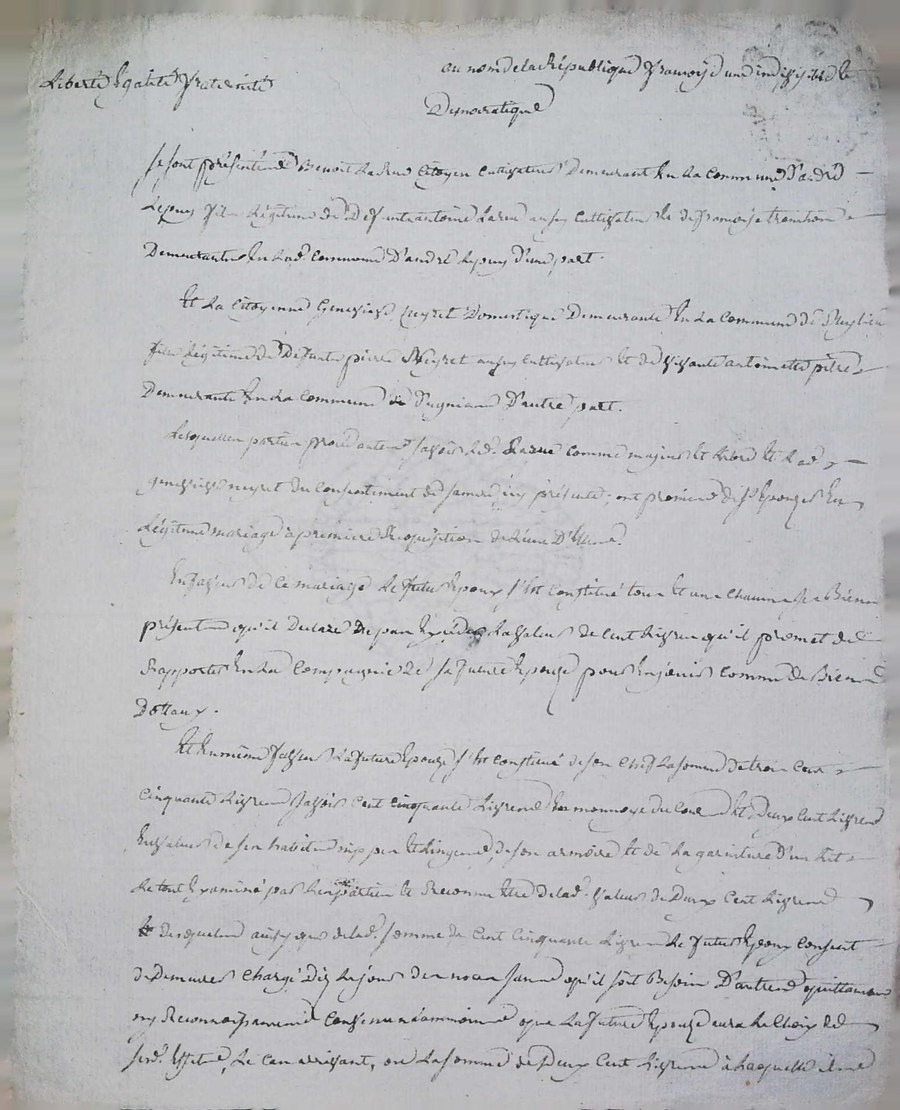 Liberté Egalité fraternité
au nom de la République françoise une indivisible
Democratique
se sont présentés Benoit Larue Citoyen Cultivateur Demeurant En La Commune D'andré
Lepuy fils Légitime de Defunt antoine Larue aussy Cultivateur et de françoise
Demeurante En Lad. Commune D'andré Lepuy D'une part.
Et La Citoyenne Genevieve neyret Domestique Demeurante En La Commune de
fille Légitime de Defunt pierre Neyret aussy Cultivateur et de vivante antoinette pitre
Demeurante En La Commune D'autre part.
Lesquelles parties procedantes savoir Led. Larue comme majeur et Libre et Lad.
genevieve neyret du Consentement de sa mere icy présente, ont promis de s'Epouzer En
Légitime mariage à premiere Requisition de L'une D'Elles.
En faveur de Ce mariage Le futur Epoux s'est Constitué tous et un chacuns ses Biens
présents qu'il Declare ne pas Exceder La valeur de Cent Livres qu'il promet de
Rapporter En La Compagnie de sa future Epouze pour En jouir Comme de Biens
Dottaux.
Et En même faveur La future Epouze s'est Constitué de son Chef La somme de trois Cent
Cinquante Livres savoir Cent Cinquante Livres En monnoye du Cour et Deux Cent Livres
En valeur de ses habits nippes et Linges, de son armoire et de La garniture d'un Lit
Le tout Examiné par Les parties et Reconnu Etre de Lad. valeur de Deux Cent Livres
desquelles aussy que de Lad. somme de Cent Cinquante Livres Le futur Epoux Consent
de Demeurer Chargé Dés Le jour des noces sans qu'il soit Besoin D'autres quittances
ny Reconnoissances Convenu néammoins que La future Epouze aura Le Choix de
sesd. Effets, Le Cas arrivant, ou La somme de Deux Cent Livres à Laquelle ils